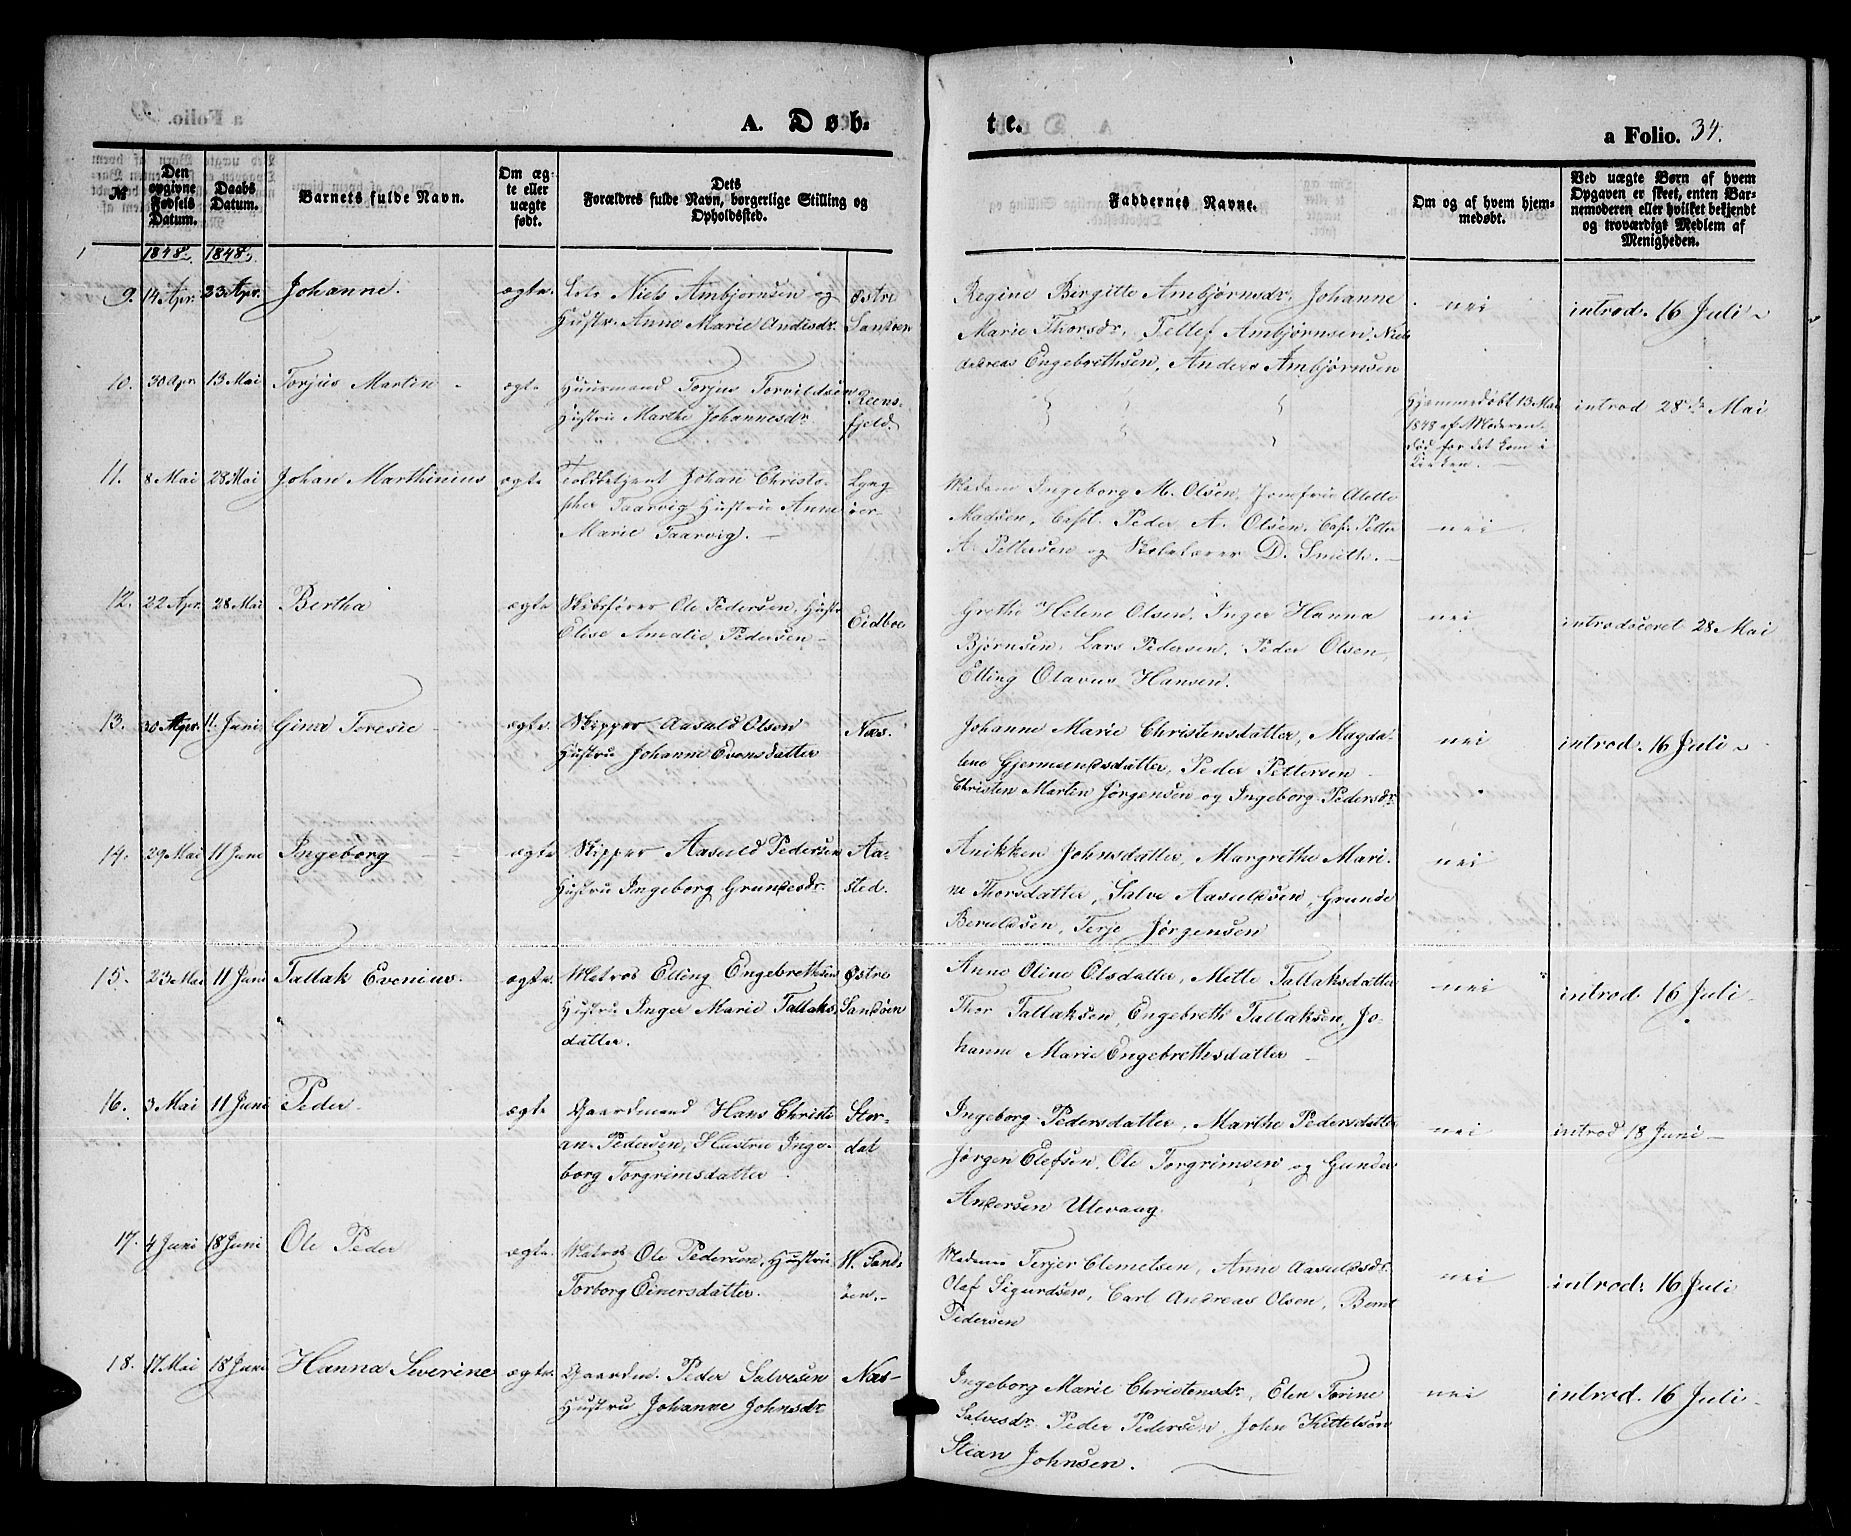 A. Døb=
te.
a Folio. 34.
№
Den opgivne Fødsels Datum.
Daabs Datum.
Barnets fulde Navn.
Om ægte eller uægte født.
Dets Forældres fulde Navn, borgerlige Stilling og Opholdssted.
Faddernes Navne.
Om og af hvem hjemmedøbt.
Ved uægte Børn af hvem Opgaven er skeet, enten Barnemoderen eller hvilket bekjendt og troværdigt Medlem af Menigheden.
1848. 1848.
9. 14 Apr. 23 Apr. Johanne. ægte. Niels Ambjørnsen og Østre
Hustr. Anne Marie Andersdr. Sandøen
Regine Birgitte Ambjørnsdr, Johanne
Marie Thorsdr, Tellef Ambjørnsen, Niels
Andreas Engebrethsen, Anders Ambjørnsen
nei introd. 16 Juli
10. 30 Apr. 13 Mai Torjus Martin ægte Huusmand Torjus Torvildsen Reens-
Hustru Marthe Johannesdr. fjeld.
Hjemmedøbt 13 Mai
1848 af Moderen
død før det kom i
Kirken.
introd 28de Mai
11. 8 Mai 28 Mai Johan Marthinius ægte Toldbetjent Johan Christo- Lyng
pher Taarvig Hustru Anne øer
Marie Taarvig.
Madam Ingeborg M. Olsen, Jomfrue Alette
Madsen, Capt. Peder A. Olsen, Cap. Petter
A. Pettersen og Skolelærer D. Smith.
nei
12. 22 Apr. 28 Mai Bertha ægte Skibsfører Ole Pedersen, Hustr Eidboe
Elise Amalie Pedersen
Grethe Helene Olsen, Inger Hanna
Bjørnsen, Lars Pedersen, Peder Olsen,
Elling Olavus Hansen.
nei introduceret 28 Mai
13. 30 Apr. 11. Juni Gina Teresie ægte. Skipper Aasuld Olsen Næs
Hustru Johanne Evensdatter
Johanne Marie Christensdatter, Magda-
lene Gjermundsdatter, Peder Pettersen
Christen Martin Jørgensen og Ingeborg Pedersdr.
nei introd. 16 Juli
14. 29 Mai 11 Juni Ingeborg ægte Skipper Aasuld Pedersen Aa-
Hustru Ingeborg Grundesdr. sted.
Anikken Johnsdatter, Margrethe Mari-
ne Thorsdatter, Salve Aasuldsen, Grunde
Beruldsen, Terje Jørgensen
nei
15. 23 Mai 11 Juni Tallak Evenius. ægte. Matros Elling Engebrethsen Østre
Hustru Inger Marie Tallaks- Sandøen
datter.
Anne Oline Olsdatter, Mette Tallaksdatter
Thor Tallaksen, Engebreth Tallaksen, Jo-
hanne Marie Engebrethsdatter
nei introd. 16 Juli
16. 3 Mai 11 Juni Peder ægte Gaardmand Hans Christi Stor-
an Pedersen, Hustru Inge- dal
borg Torgrimsdatter.
Ingeborg Pedersdatter, Marthe Pedersdatter
Jørgen Olefsen, Ole Torgrimsen og Gunder
Andersen Utevaag.
nei introd 18 Juni
17. 4 Juni 18 Juni Ole Peder ægte. Matros Ole Pedersen, Hustru W. Sand-
Torborg Einersdatter. øen.
Madame Terjer Clemetsen, Anne Aasuldsdr.
Olaf Sigurdsen, Carl Andreas Olsen, Bernt
Pedersen
nei introd: 16 Juli
18. 17 Mai 18 Juni Hanna Severine ægte. Gaardm. Peder Salvesen Næs
Hustru Johanne Johnsdr
Ingeborg Marie Christensdr, Elen Torine
Salvesdr. Peder Pedersen, John Kittelsøn
Stian Johnsen.
nei introd. 16 Juli